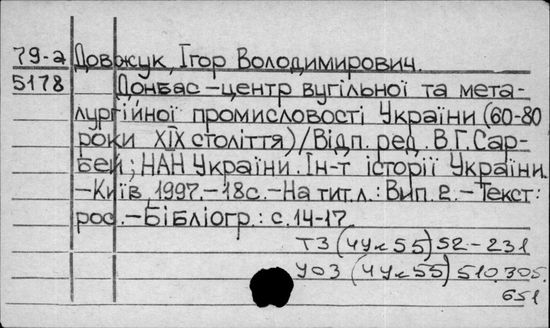 79-а Довжук, Ігор Володимирович.
5178 Донбас – центр вугільної та мета-
лургійної промисловості України (60-80
роки XIX століття) / Відп. ред. В.Г. Сар-
бей; НАН України. Ін-т історії України.
– Київ, 1997. – 18с. – На тит. л.: Вип. 2. – Текст:
рос. – Бібліогр.: с. 14-17
Т3 (4Ук55) 52-231
У03 (4Ук55) 510.305.
651